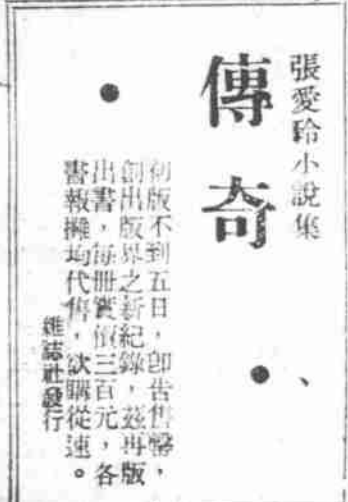 張愛玲小說集
傳奇
初版不到五日，卽告售罄，
創出版界之新紀錄，茲再版
出書，每冊實價三百元，各
書報攤均代售，欲購從速。
雜誌社發行